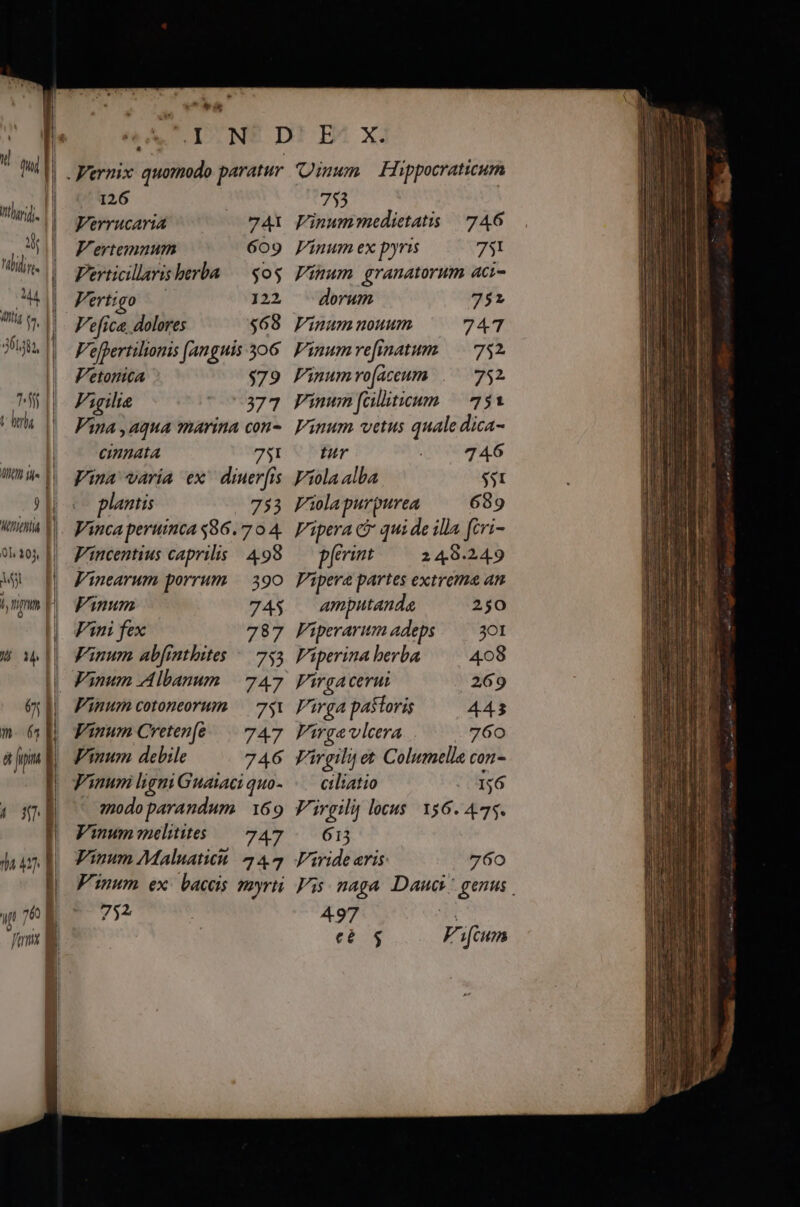 INDEX.
Vernix quomodo paratur
126
Verrucaria 741
Vertemnum 609
Verticillaris herba 505
Vertigo 122
Vesicæ dolores 568
Vespertilionis sanguis 306
Vetonica 579
Vigiliæ 377
Vina, aqua marina con-
cinnata 751
Vina varia ex diuersis
plantis 753
Vinca peruinca 586. 704
Vincentius caprilis 498
Vinearum porrum 390
Vinum 745
Vini fex 787
Vinum absinthites 753
Vinum Albanum 747
Vinum cotoneorum 751
Vinum Cretense 747
Vinum debile 746
Vinum ligni Guaiaci quo-
modo parandum 169
Vinum melitites 747
Vinum Maluaticũ 747
Vinum ex baccis myrti
752
Vinum Hippocraticum
753
Vinum medietatis 746
Vinum ex pyris 751
Vinum granatorum aci-
dorum 752
Vinum nouum 747
Vinum resinatum 752
Vinum rosaceum 752
Vinum scilliticum 751
Vinum vetus quale dica-
tur 746
Viola alba 551
Viola purpurea 689
Vipera & qui de illa scri-
pserint 248.249
Viperæ partes extremæ an
amputandæ 250
Viperarum adeps 301
Viperina herba 408
Virga cerui 269
Virga pastoris 443
Virgæ vlcera 760
Virgilij et Columellæ con-
ciliatio 156
Virgilij locus 156. 475.
613
Viride æris 760
Vis naga Dauci genus
497
cc 5 Viscum